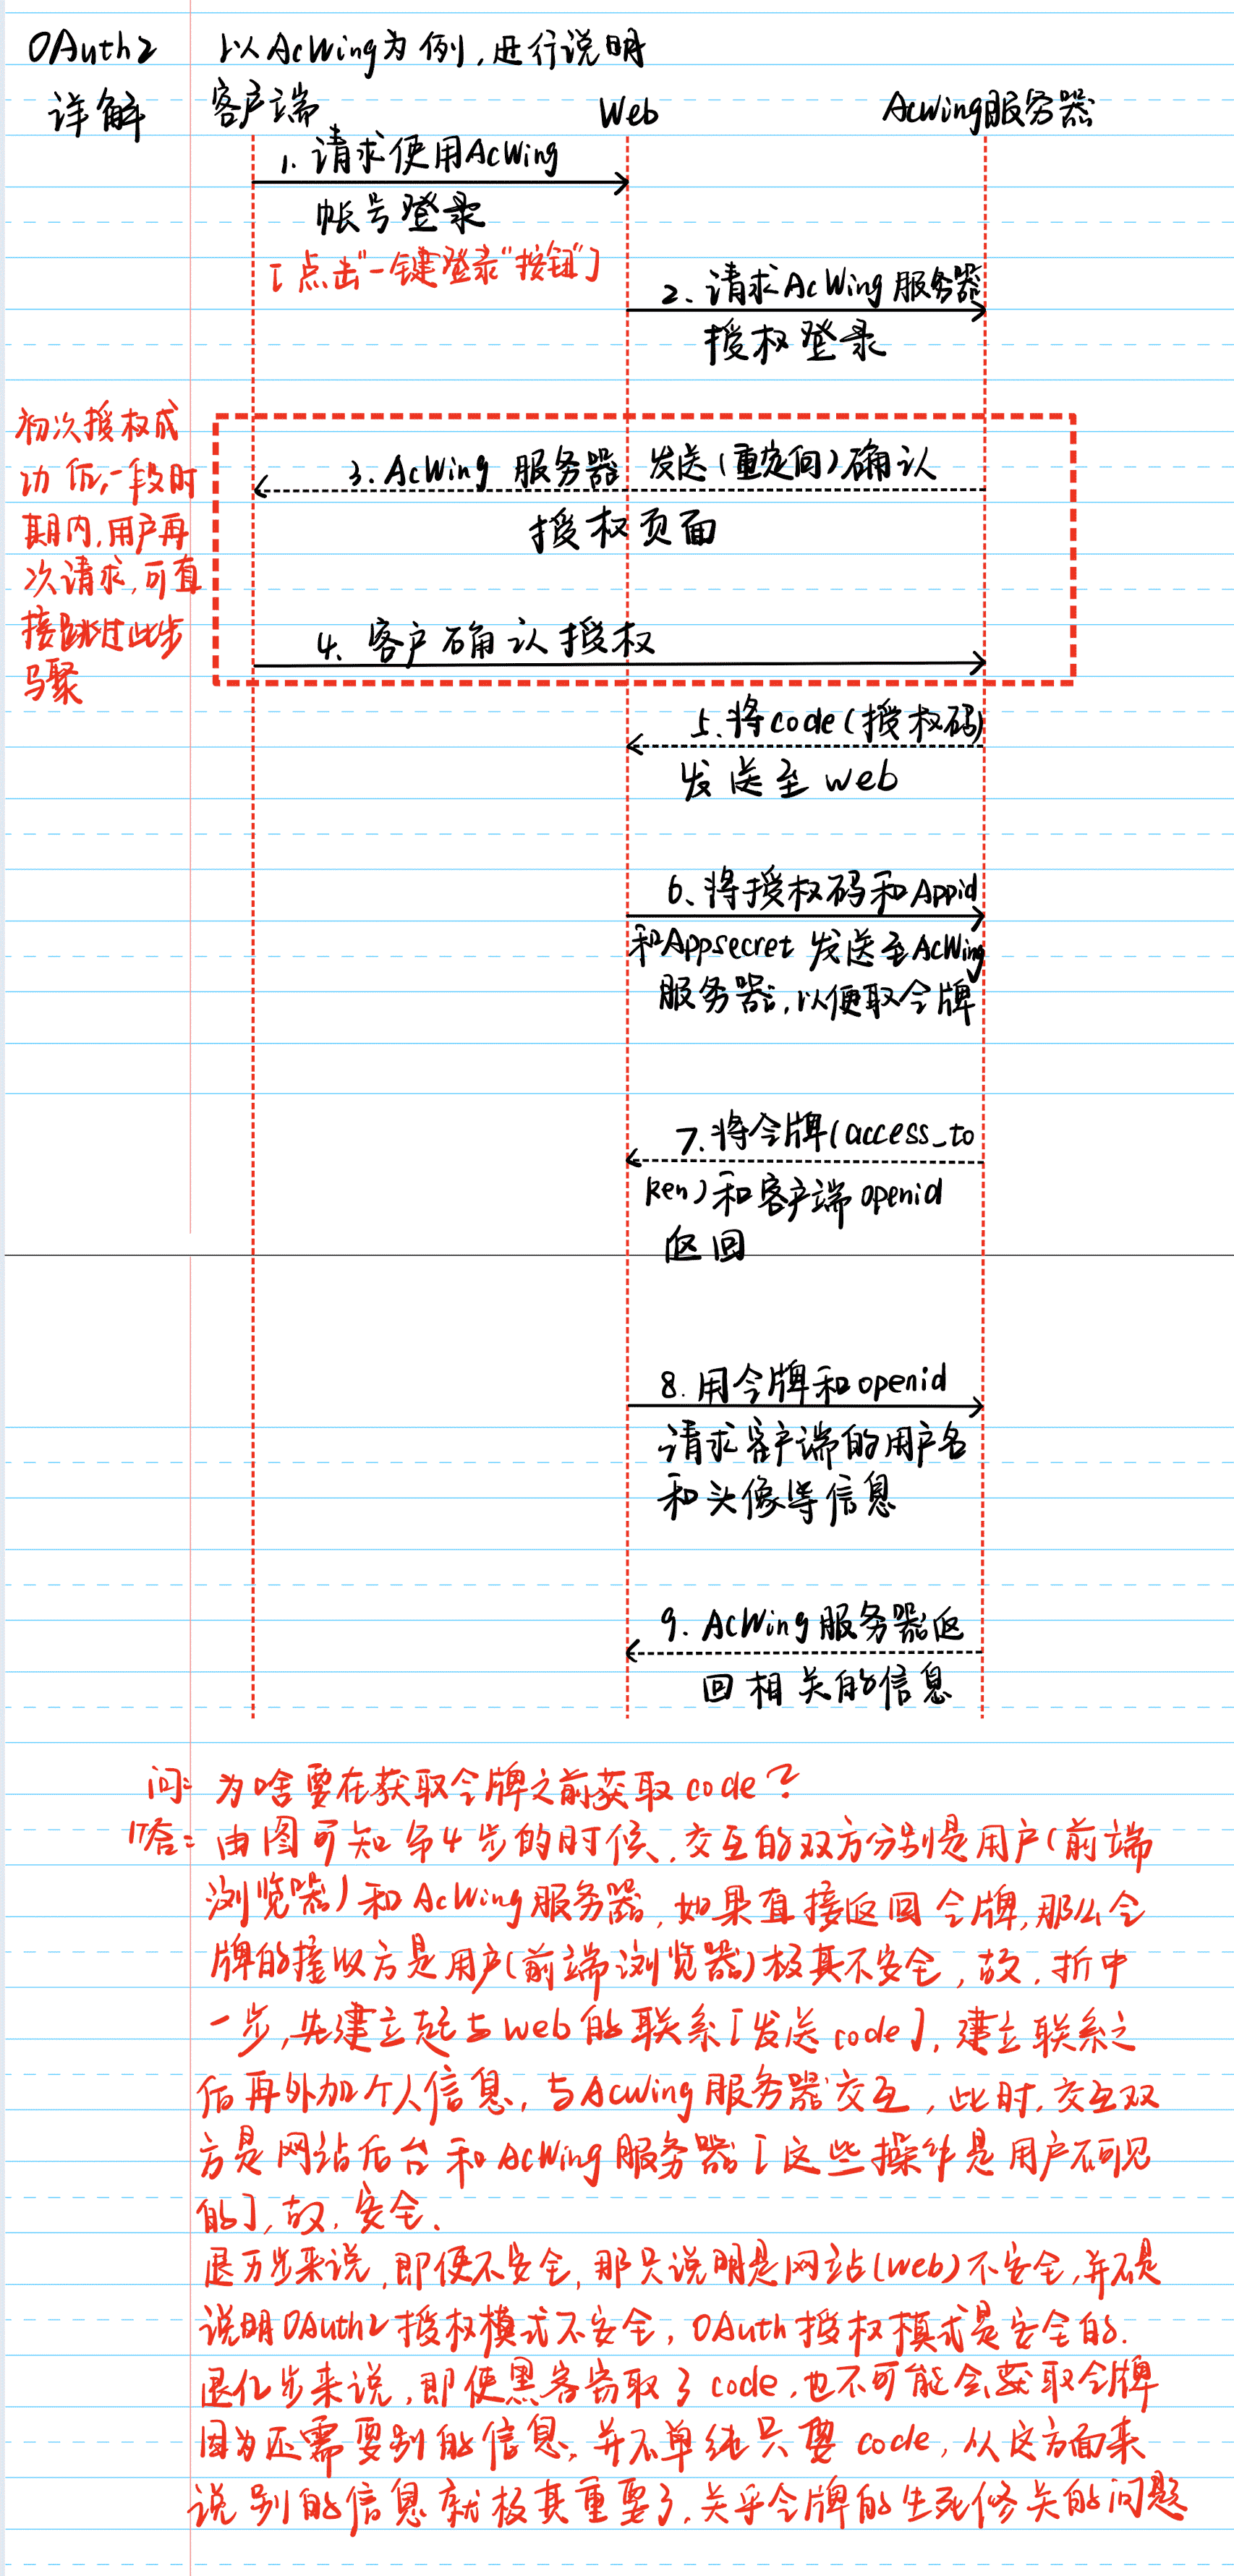 OAuth2 以AcWing为例,进行说明
详解 客户端 Web AcWing服务器
1. 请求使用AcWing
帐号登录
[点击"一键登录"按钮]
2. 请求AcWing服务器
授权登录
初次授权成
功后,一段时
期内,用户再
次请求,可直
接跳过此步
骤
3. AcWing 服务器 发送(重定向)确认
授权页面
4. 客户确认授权
5. 将code(授权码)
发送至web
6、将授权码和Appid
和Appsecret 发送至AcWing
服务器,以便取令牌
7. 将令牌(access_to
ken)和客户端openid
返回
8. 用令牌和openid
请求客户端的用户名
和头像等信息
9. AcWing服务器返
回相关的信息
问: 为啥要在获取令牌之前获取code?
答: 由图可知第4步的时候,交互的双方分别是用户(前端
浏览器)和AcWing服务器,如果直接返回令牌,那么令
牌的接收方是用户(前端浏览器)极其不安全,故,折中
一步,先建立起与web的联系[发送code],建立联系之
后再外加个人信息,与AcWing服务器交互,此时,交互双
方是网站后台和AcWing服务器[这些操作是用户不可见
的],故,安全.
退万步来说,即便不安全,那只说明是网站(web)不安全,并不是
说明OAuth2授权模式不安全,OAuth授权模式是安全的.
退亿步来说,即使黑客窃取了code,也不可能会获取令牌
因为还需要别的信息,并不单纯只要code,从这方面来
说别的信息就极其重要了,关乎令牌的生死修关的问题